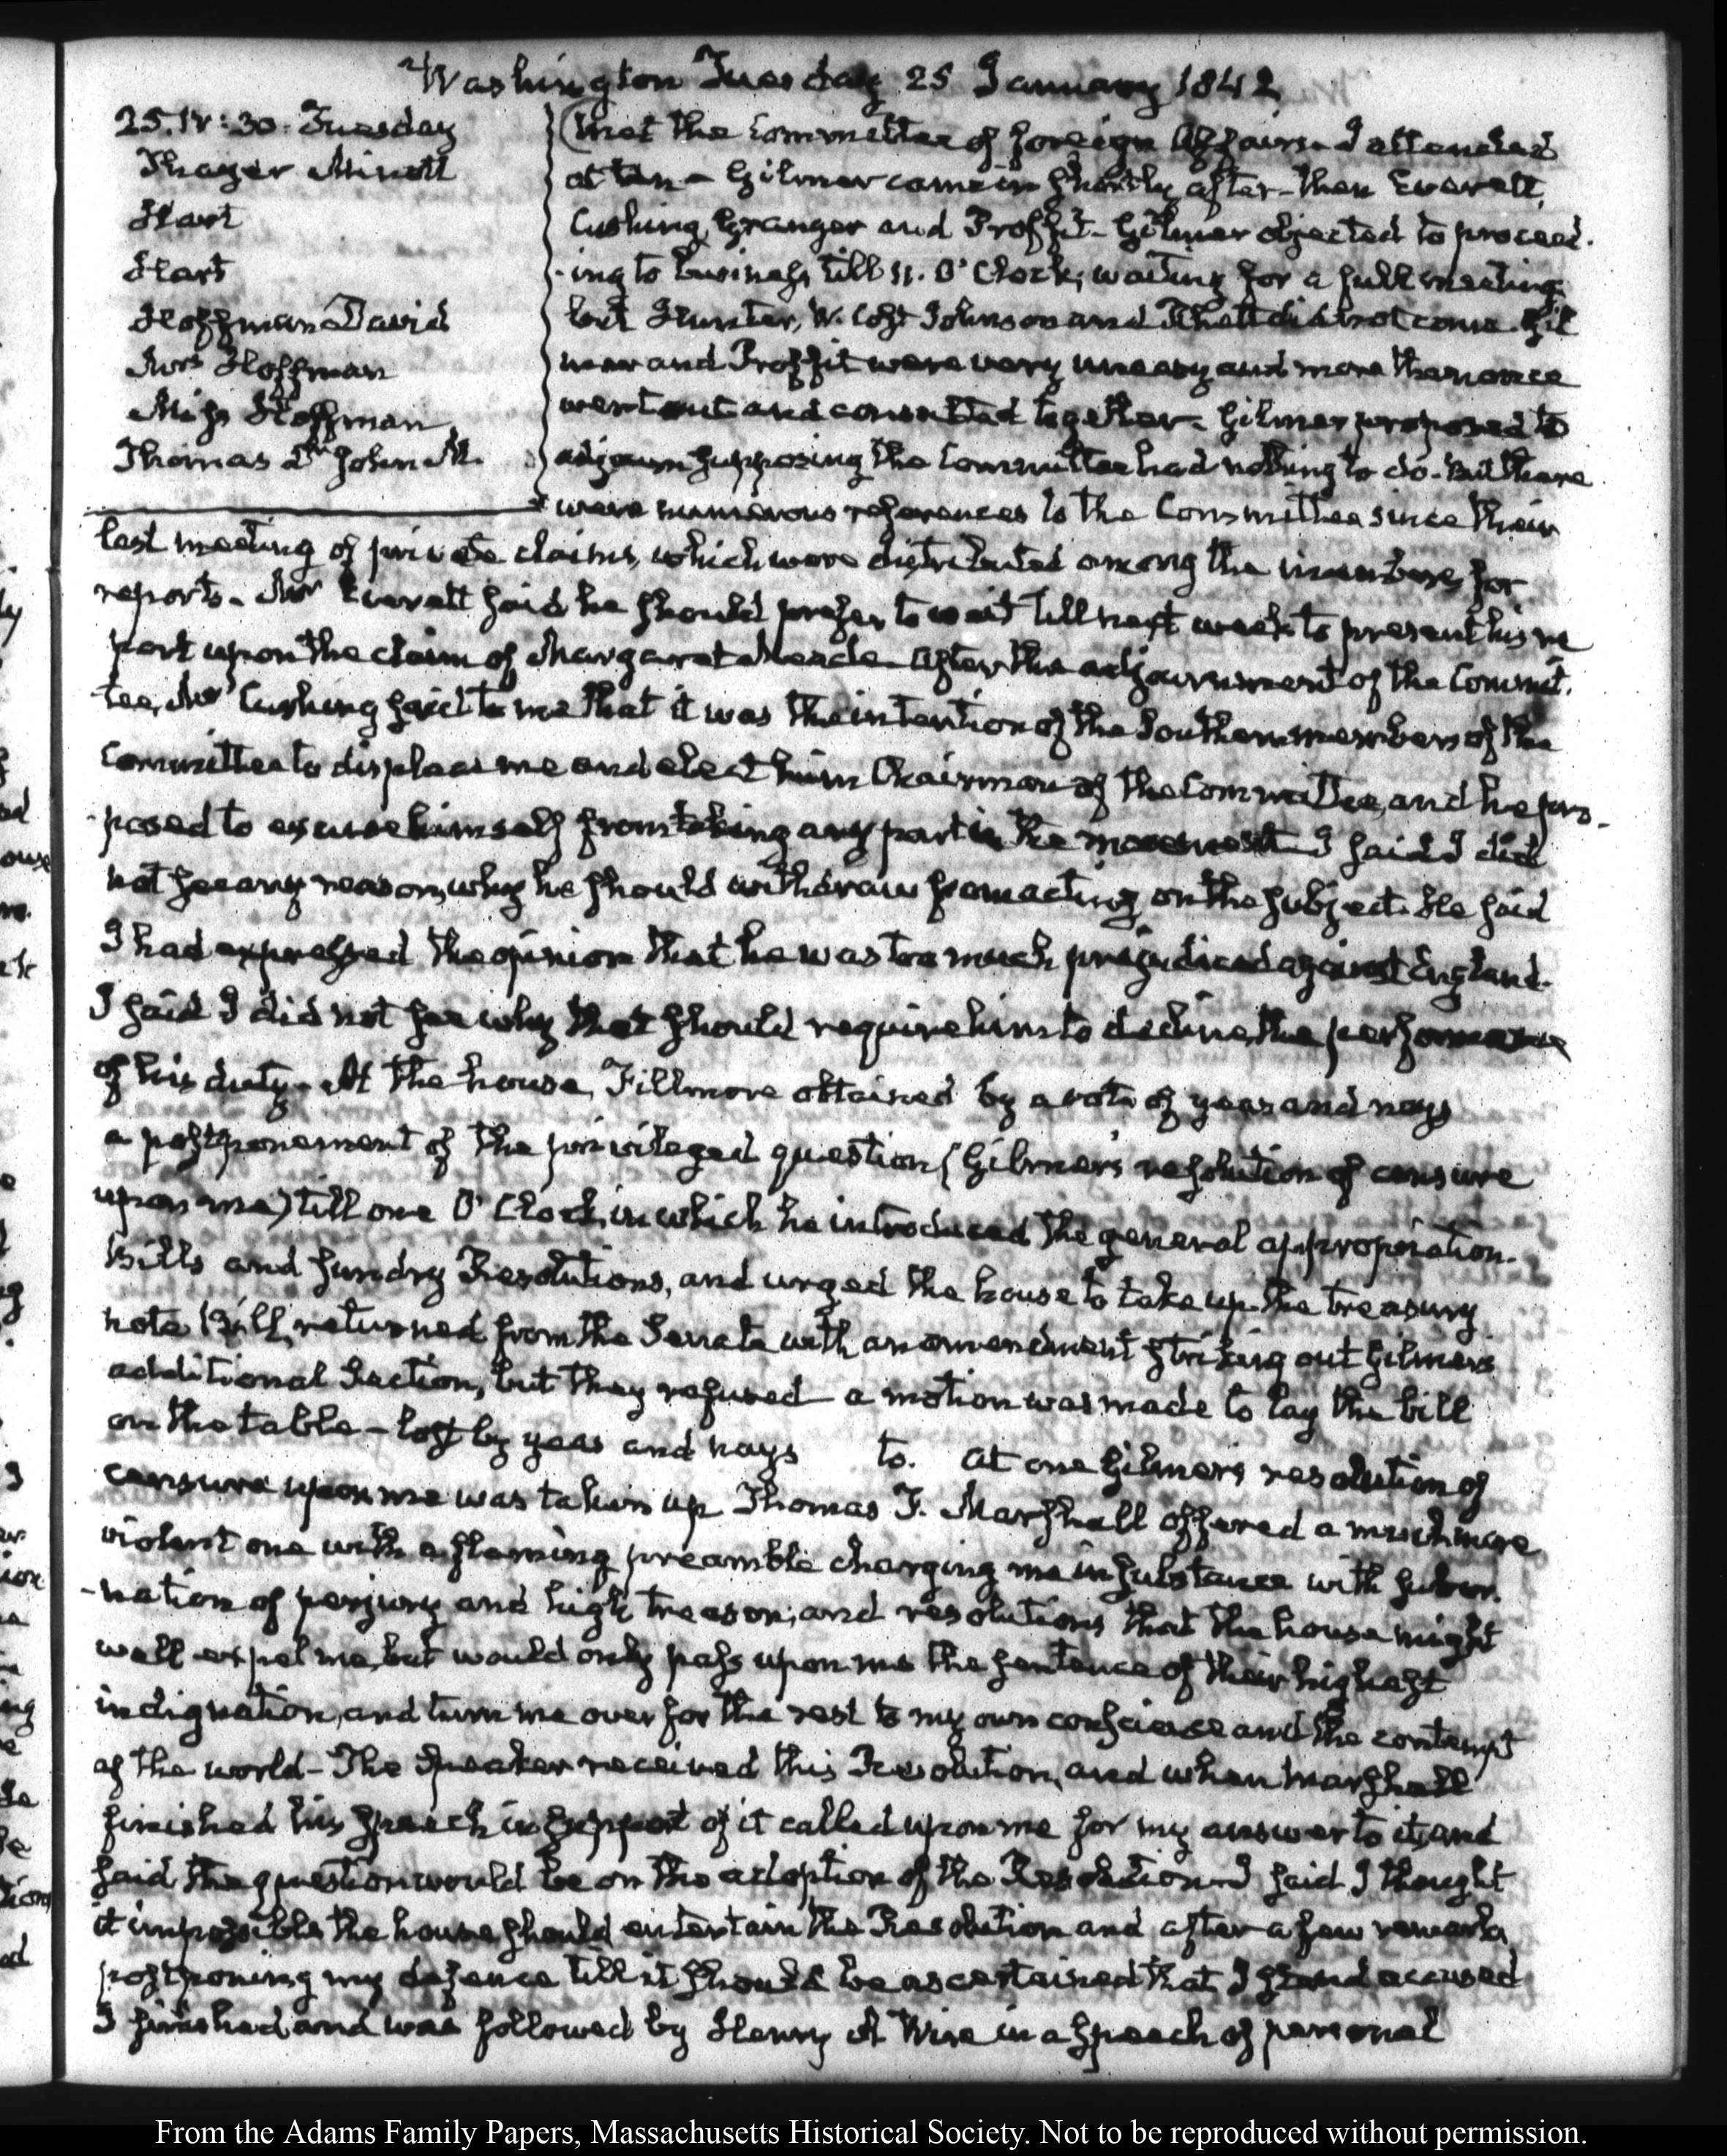 Washington Tuesday 25 January 1842
25. IV:30. Tuesday
Thayer Minott
Hart
Hart
Hoffman David
Mrs Hoffman
Miss Hoffman
Thomas Dr John M.
met the Committee of foreign Affairs. I attended
at ten — Gilmer came in shortly after — then Everett,
Cushing, Granger and Proffit — Gilmer objected to proceed-
-ing to business, till 11. O'Clock, waiting for a full meeting
but Hunter, W. Cost Johnson and Rhett did not come. Gil
mer and Proffit were very uneasy and more than once
went out and consulted together. Gilmer proposed to
adjourn supposing the Committee had nothing to do. But there
were numerous references to the Committee since their
last meeting of private claims, which were distributed among the members, for
reports. Mr Everett said he should prefer to wait till next week to present his re
port upon the claim of Margaret Meade. After the adjournment of the Commit-
tee, Mr Cushing said to me that it was the intention of the Southern members of the
Committee to displace me and elect him Chairman of the Committee, and he pro-
-posed to excuse himself from taking any part in the movement. I said I did
not see any reason, why he should withdraw from acting on the subject. He said
I had expressed the opinion that he was too much prejudiced against England.
I said I did not see why that should require him to decline the performance
of his duty. At the house, Fillmore obtained by a vote of yeas and nays
a postponement of the privileged question (Gilmer's resolution of censure
upon me) till one O'Clock, in which he introduced the general appropriation.
Bills and sundry Resolutions, and urged the house to take up the treasury
note Bill, returned from the Senate with an amendment striking out Gilmer's
additional Section, but they refused a motion was made to lay the bill
on the table — lost by yeas and nays to. At one Gilmer's resolution of
censure upon me was taken up Thomas F. Marshall offered a much more
violent one with a flaming preamble charging me in substance with subor-
-nation of perjury and high treason, and resolutions that the house might
well expel me, but would only pass upon me the sentence of their highest
indignation, and turn me over for the rest to my own conscience and the contempt
of the world — The Speaker received this Resolution, and when Marshall
finished his speech in support of it called upon me for my answer to it, and
said the question would be on the adoption of the Resolution — I said I thought
it impossible the house should entertain the Resolution and after a few remarks
postponing my defence till it should be ascertained that I stand accused
I finished and was followed by Henry A Wise in a speech of personal
From the Adams Family Papers, Massachusetts Historical Society. Not to be reproduced without permission.